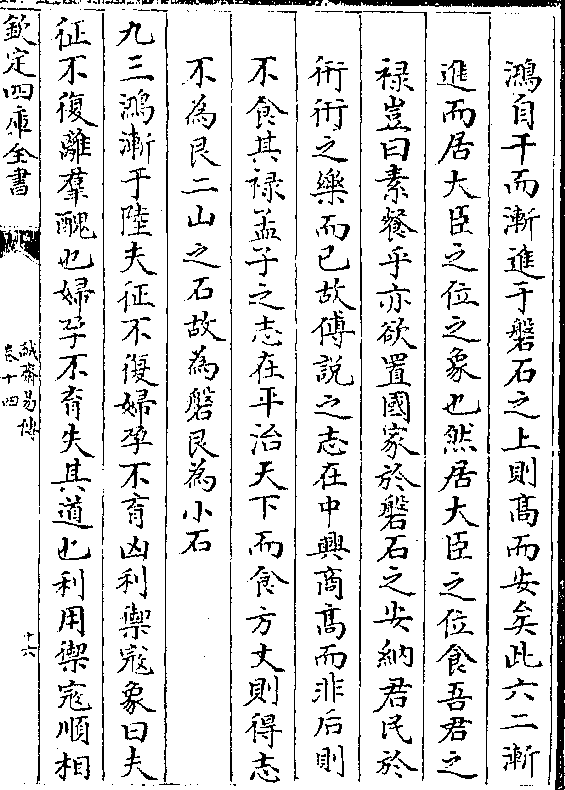 鴻自干而漸進于磐石之上則髙而安矣此六二漸
進而居大臣之位之象也然居大臣之位食吾君之
禄豈曰素餐乎亦欲置國家於磐石之安納君民於
衎衎之樂而已故傅說之志在中興商髙而非后則
不食其禄孟子之志在平治天下而食方丈則得志
不為艮二山之石故為磐艮為小石
九三鴻漸于陸夫征不復婦孕不育凶利禦寇象曰夫
征不復離羣醜也婦孕不育失其道也利用禦寇順相
欽定四庫全書
誠齋易傳
卷十四
十六